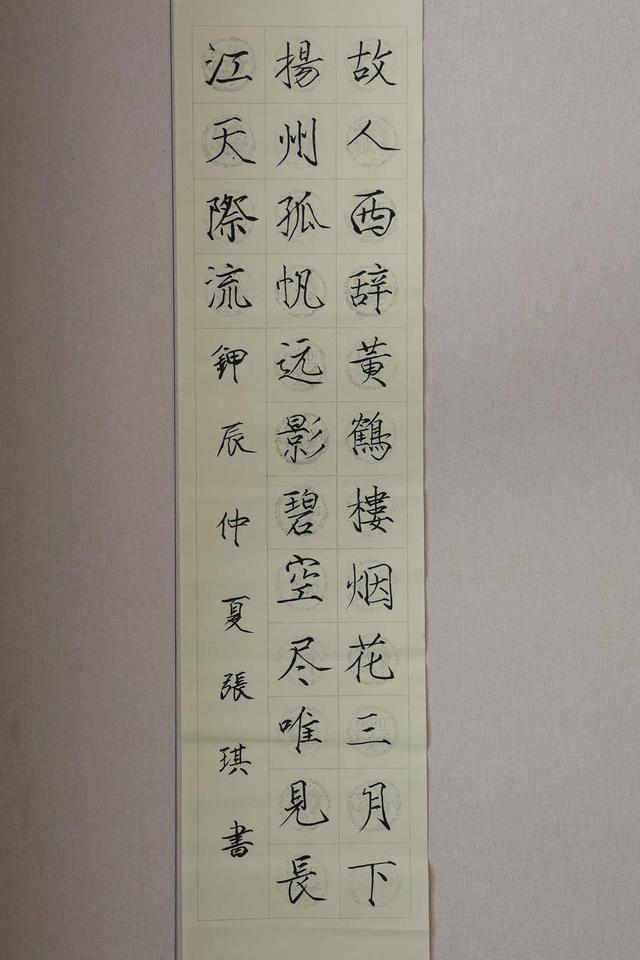 故人西辞黃鶴樓烟花三月下
揚州孤帆远影碧空尽唯見長
江天際流鉀辰仲夏張琪書